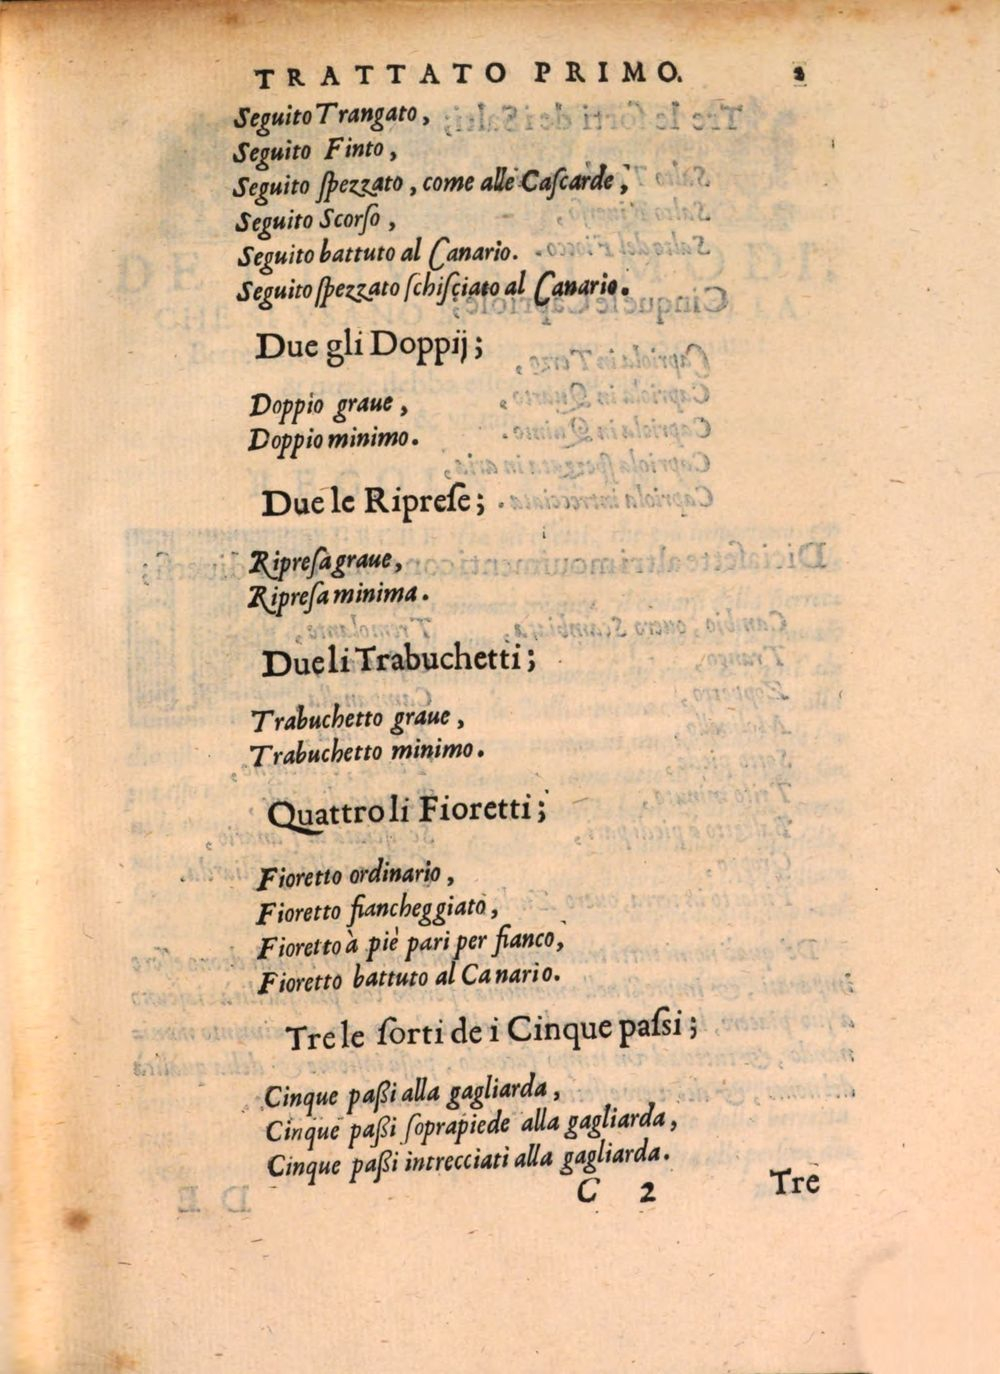 TRATTATO PRIMO. 2
Seguito Trangato,
Seguito Finto,
Seguito ſpezzato, come alle Caſcarde,
Seguito Scorſo,
Seguito battuto al Canario.
Seguito ſpezzato ſchiſciato al Canario.
Due gli Doppij;
Doppio graue,
Doppio minimo.
Due le Ripreſe;
Ripreſa graue,
Ripreſa minima.
Due li Trabuchetti;
Trabuchetto graue,
Trabuchetto minimo.
Quattro li Fioretti;
Fioretto ordinario,
Fioretto fiancheggiato,
Fioretto à piè pari per fianco,
Fioretto battuto al Canario.
Tre le ſorti de i Cinque paſsi;
Cinque paßi alla gagliarda,
Cinque paßi ſoprapiede alla gagliarda,
Cinque paßi intrecciati alla gagliarda.
C 2 Tre